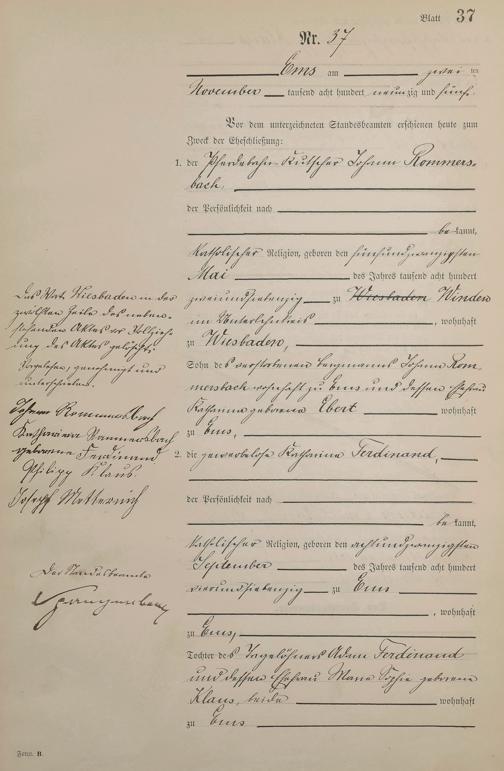 Blatt 37
Nr. 37
Ems am zwei ten
November tausend acht hundert neunzig und fünf
Vor dem unterzeichneten Standesbeamten erschienen heute zum
Zweck der Eheschließung:
1. der Pferdebahn-Kutscher Johann Rommers-
bach,
der Persönlichkeit nach
be kannt,
katholischer Religion, geboren den fünfundzwanzigsten
Mai des Jahres tausend acht hundert
zweiundsiebenzig zu Wiesbaden Winden
im Unterlahnkreis, wohnhaft
zu Wiesbaden,
Sohn des verstorbenen Bergmanns Johann Rom-
mersbach wohnhaft zu Ems und dessen Ehefrau
Katharina geborene Ebert wohnhaft
zu Ems,
2. die gewerbelose Katharina Ferdinand,
der Persönlichkeit nach
be kannt,
katholischer Religion, geboren den achtundzwanzigsten
September des Jahres tausend acht hundert
vierundsiebenzig zu Ems
, wohnhaft
zu Ems,
Tochter des Tagelöhners Adam Ferdinand
und dessen Ehefrau Maria Sophie geborene
Klaus, beide wohnhaft
zu Ems
Das Wort Wiesbaden in der
zwölften Zeile des neben-
stehenden Aktes vor Vollzieh-
ung des Aktes gelöscht.
Vorgelesen, genehmigt und
unterschrieben.
Johann Rommersbach
Katharina Rommersbach
geborene Ferdinand
Philipp Klaus.
Joseph Metternich
Der Standesbeamte
Form. B.